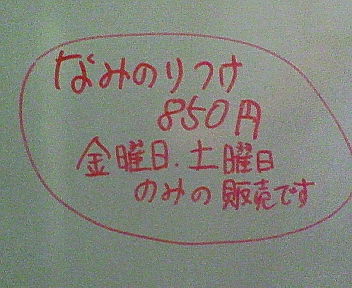 なみのりつけ
850円
金曜日.土曜日
のみの販売です